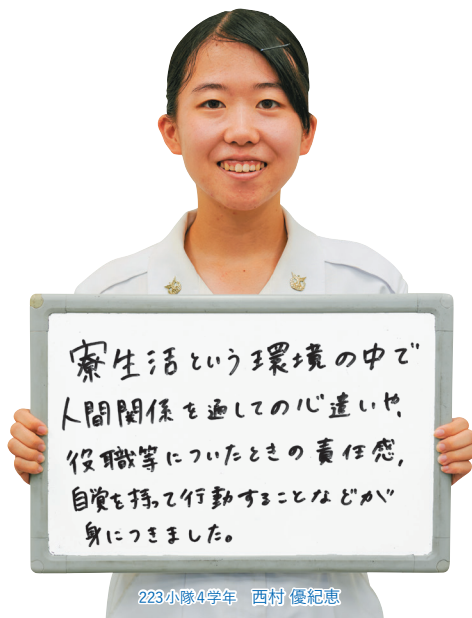 寮生活という環境の中で
人間関係を通しての心遣いや、
役職等についたときの責任感,
自覚を持って行動することなどが
身につきました。
223小隊4学年 西村 優紀恵